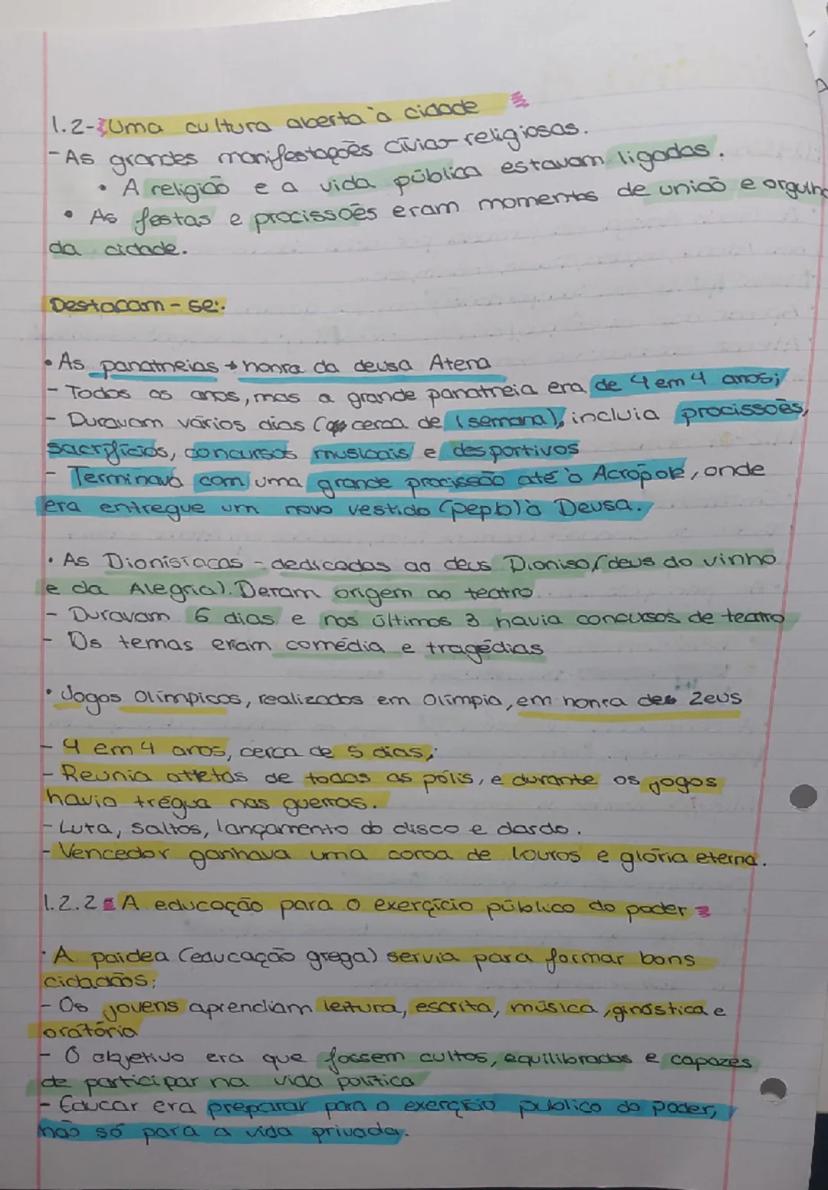 1.2- Uma cultura aberta à cidade
- As grandes manifestações cívico-religiosas.
• A religião e a vida pública estavam ligadas.
• As festas e procissões eram momentos de união e orgulho
da cidade.
Destacam-se:
• As panateneias → honra da deusa Atena
- Todos os anos, mas a grande panatneia era de 4 em 4 anos;
- Duravam vários dias (cerca de 1 semana), incluia procissões,
sacrifícios, concursos musicais e desportivos
- Terminava com uma grande procissão até à Acrópole, onde
era entregue um novo vestido (peplo) à Deusa.
• As Dionisíacas - dedicadas ao deus Dioniso (deus do vinho
e da Alegria). Deram origem ao teatro
- Duravam 6 dias e nos últimos 3 havia concursos de teatro
- Os temas eram comédia e tragédias
• Jogos Olímpicos, realizados em Olímpia, em honra de Zeus
- 4 em 4 anos, cerca de 5 dias;
- Reunia atletas de todas as pólis, e durante os jogos
havia trégua nas guerras.
- Luta, saltos, lançamento do disco e dardo.
- Vencedor ganhava uma coroa de louros e glória eterna.
1.2.2 A educação para o exercício público do poder
• A paidea (educação grega) servia para formar bons
cidadãos:
- Os jovens aprendiam leitura, escrita, música, ginástica e
oratória
- O objetivo era que fossem cultos, equilibrados e capazes
de participar na vida política
- Educar era preparar para o exercício público do poder,
não só para a vida privada.